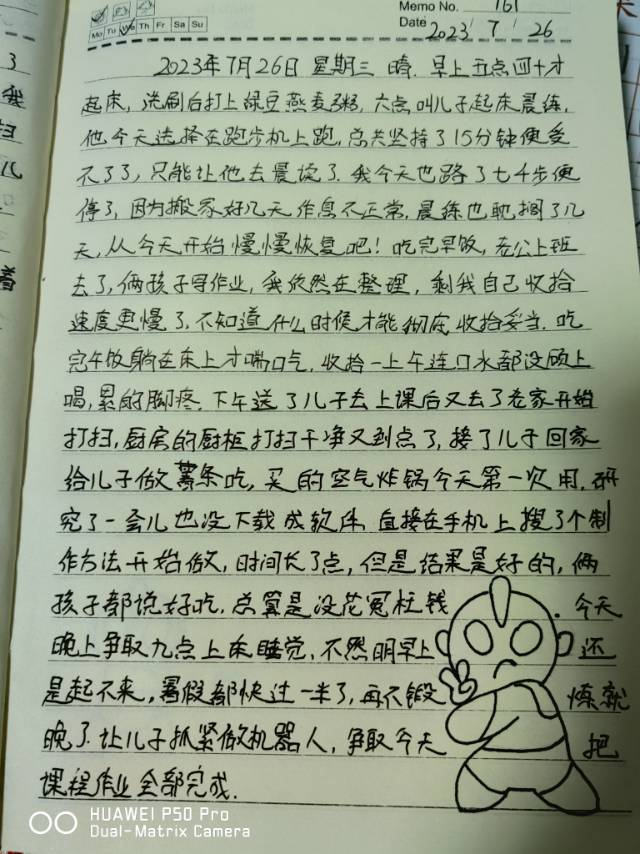 Memo No. 161
Mo Tu We Th Fr Sa Su
Date 2023 / 7 / 26
2023年7月26日 星期三 晴. 早上五点四十才
起床, 洗刷后打上绿豆燕麦粥, 六点叫儿子起床晨练,
他今天选择在跑步机上跑, 总共坚持了15分钟便受
不了了, 只能让他去晨读了. 我今天也跑了七千步便
停了, 因为搬家好几天作息不正常, 晨练也耽搁了几
天, 从今天开始慢慢恢复吧! 吃完早饭, 老公上班
去了, 俩孩子写作业, 我依然在整理, 剩我自己收拾
速度更慢了. 不知道什么时候才能彻底收拾妥当. 吃
完午饭躺在床上才喘口气. 收拾一上午连口水都没顾上
喝, 累的脚疼. 下午送了儿子去上课后又去了老家开始
打扫, 厨房的厨柜打扫干净又到点了, 接了儿子回家
给儿子做薯条吃, 买的空气炸锅今天第一次用. 研
究了一会儿也没下载成软件 直接在手机上搜了个制
作方法开始做, 时间长了点, 但是结果是好的, 俩
孩子都说好吃. 总算是没花冤枉钱. 今天
晚上争取九点上床睡觉, 不然明早上还
是起不来, 暑假都快过一半了, 再不锻炼就
晚了. 让儿子抓紧做机器人, 争取今天把
课程作业全部完成.
HUAWEI P50 Pro
Dual-Matrix Camera